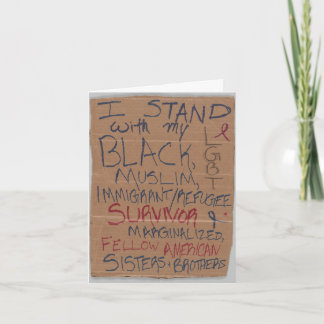 I STAND
with my
BLACK,
LGBT
MUSLIM,
IMMIGRANT/REFUGEE
SURVIVOR &
MARGINALIZED,
FELLOW AMERICAN
SISTERS + BROTHERS